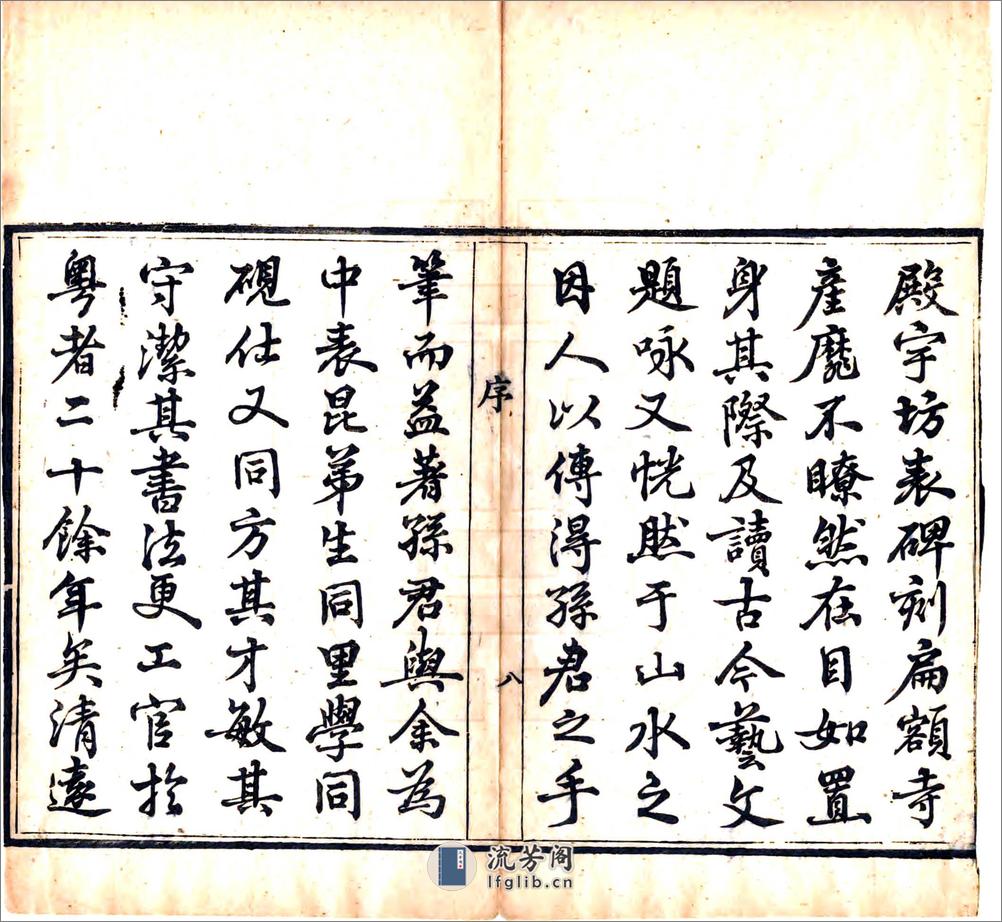 殿宇坊表碑刻扁額寺
產靡不瞭然在目如置
身其際及讀古今藝文
題咏又恍然于山水之
因人以傳得孫君之手
序
八
筆而益著孫君與余為
中表昆弟生同里學同
硯仕又同方其才敏其
守潔其書法更工官於
粵者二十餘年矣清遠
流芳阁
lfglib.cn